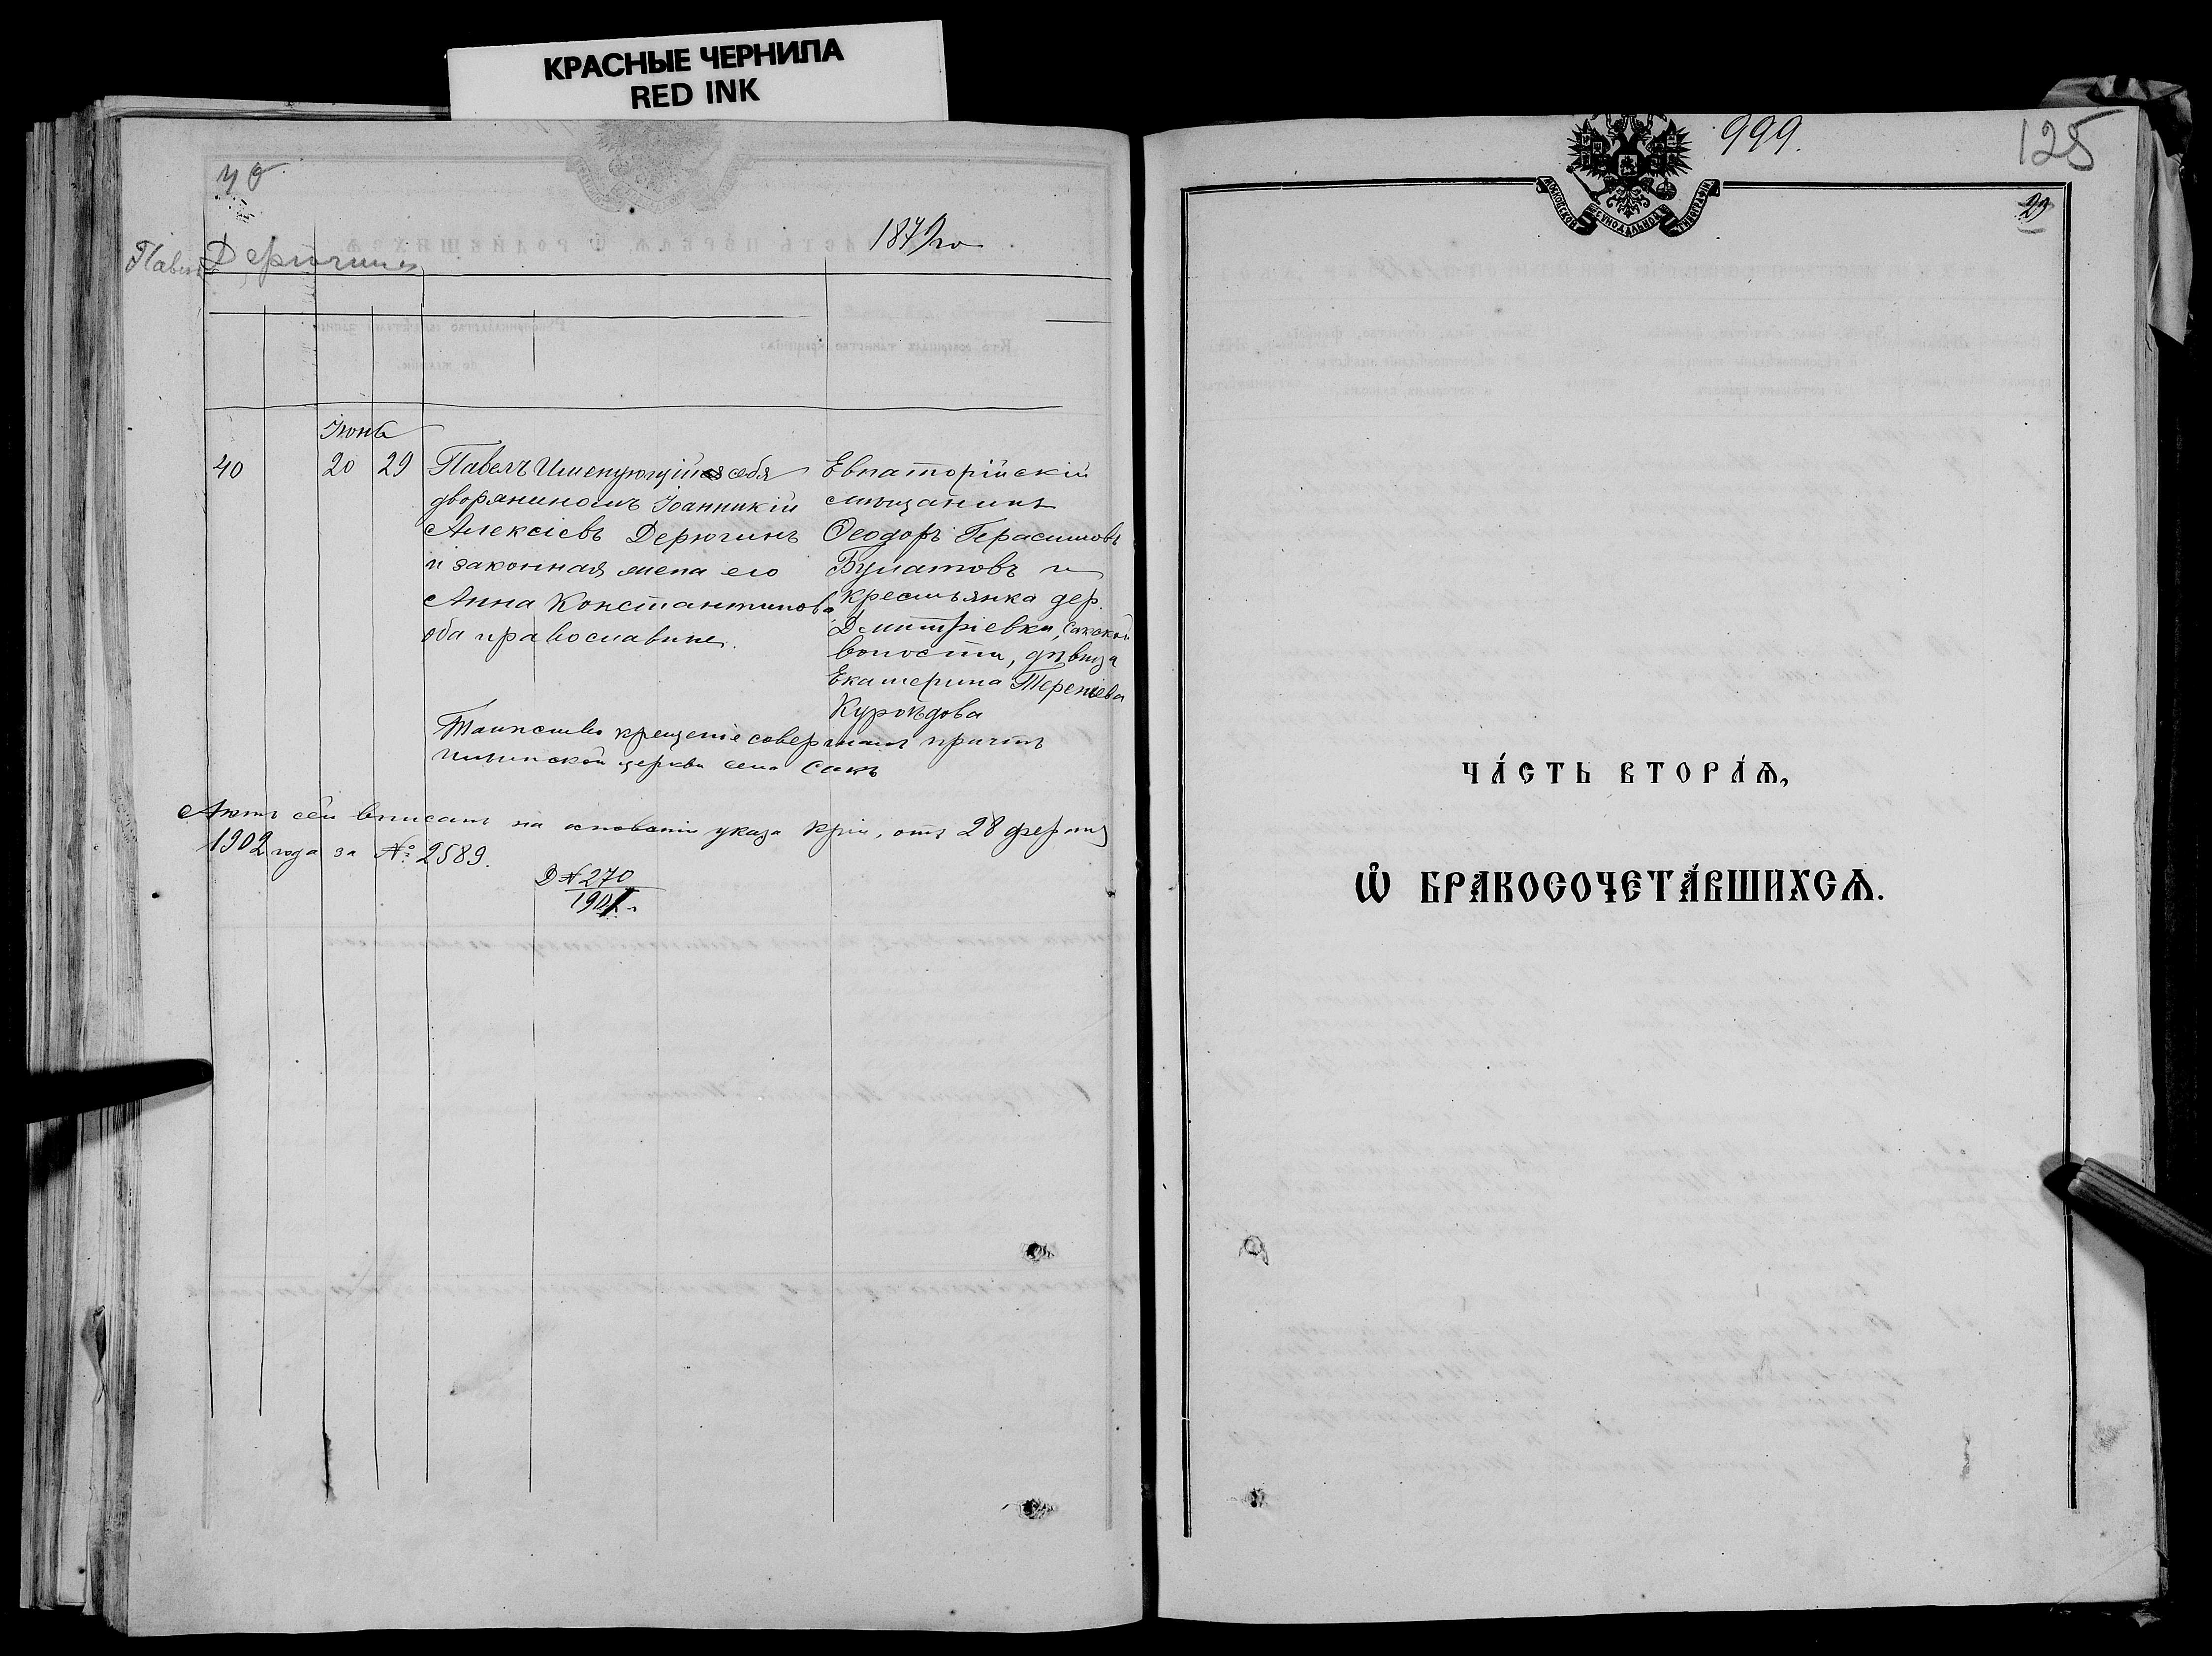 КРАСНЫЕ ЧЕРНИЛА
RED INK
40
1879 го
Павелъ Дерюгинъ
Іюнь
40 20 29
Павелъ Именующій себя
дворяниномъ Іоанникій
Алексіевъ Дерюгинъ
и законная жена его
Анна Константинова
оба православные.
Евпаторійскій
мѣщанинъ
Ѳеодоръ Герасимовъ
Булатовъ и
крестьянка дер.
Дмитріевки, Сакской
волости, дѣвица
Екатерина Терентіева
Куроѣдова
Таинство крещенія совершалъ причтъ
Ильинской церкви села Сакъ
Актъ сей вписанъ на основаніи указа от 28 февраля
1902 года за № 2589.
Д № 270
1901 г.
999.
125
29
МОСКОВСКОЙ СѴНОДАЛЬНОЙ ТИПОГРАФІИ
ЧА́СТЬ ВТОРА́Ѧ,
Ѽ БРАКОСОЧЕТА́ВШИХСѦ.